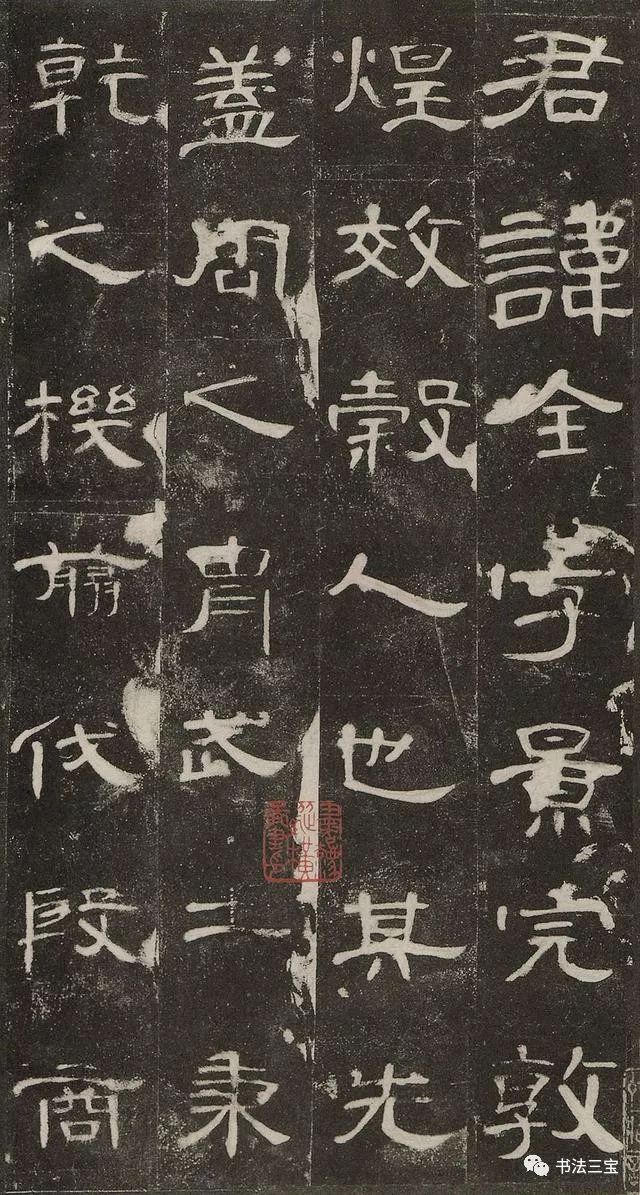 君諱全字景完敦
煌效穀人也其先
蓋周之胄武王秉
乾之機翦伐殷商
书法三宝